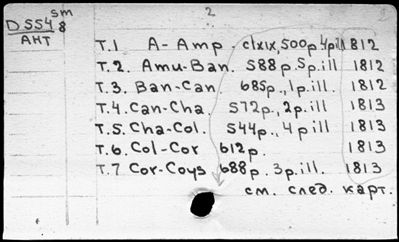 sm
2
D 554
8
АНТ
Т.1 A-Amp. clxix, 500p 4pill 1812
Т.2. Amu-Ban. 588p. 5p.ill 1812
Т.3. Ban-Can 685p., 1p.ill. 1812
Т.4. Can-Cha. 572p., 2p.ill 1813
Т.5. Cha-Col. 544p., 4pill 1813
Т.6. Col-Cor 612p. 1813
Т.7 Cor-Coys 688p. 3p.ill. 1813
см. след. карт.